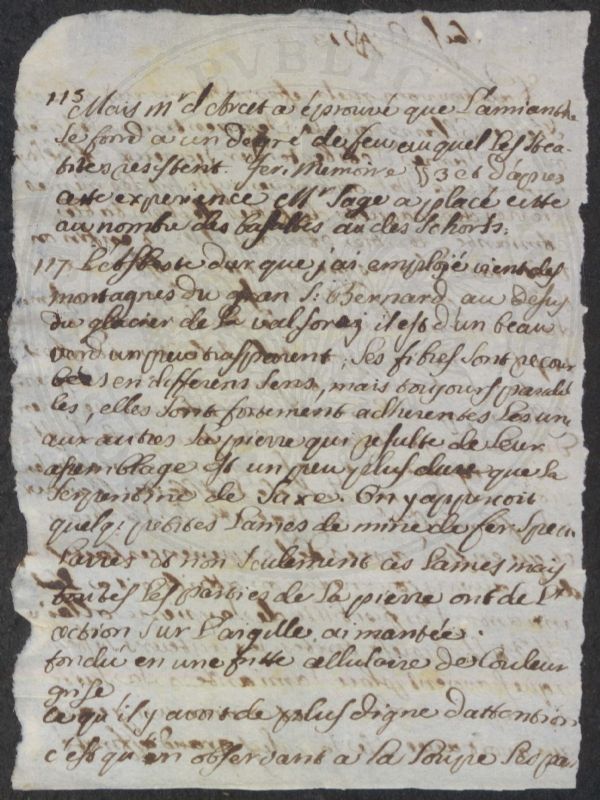 115 Mais mr d'Arcet a éprouvé que l'amianthe
se fond a un degré de feu auquel les stéa-
tites resistent. Ier. Memoire 53 et d'apres
cette experience Mr Sage a placé cette
au nombre des basaltes au des schorts.
117 L'asbeste dur que j'ai emploié vient des
montagnes du gran St Bernard au desus
du glacier de la valsorez il est d'un beau
verd un peu trasparent, ses fibres sont recour
bées en different sens, mais toujours paralle
les, elles sont fortement adherentes les un
aux autres la pierre qui resulte de leur
asemblage est un peu plus dure que la
serpentine de Saxe. On y apperçoit
quelq: petites lames de mine de fer specu
laires et non seulement ces lames mais
toutes les parties de la pierre ont de l'
action sur l'aigille aimantée.
fondu en une fritte cellulaire de couleur
grise
ce qu'il y avoit de plus digne d'attention
c'est qu'en observant a la loupe les pa